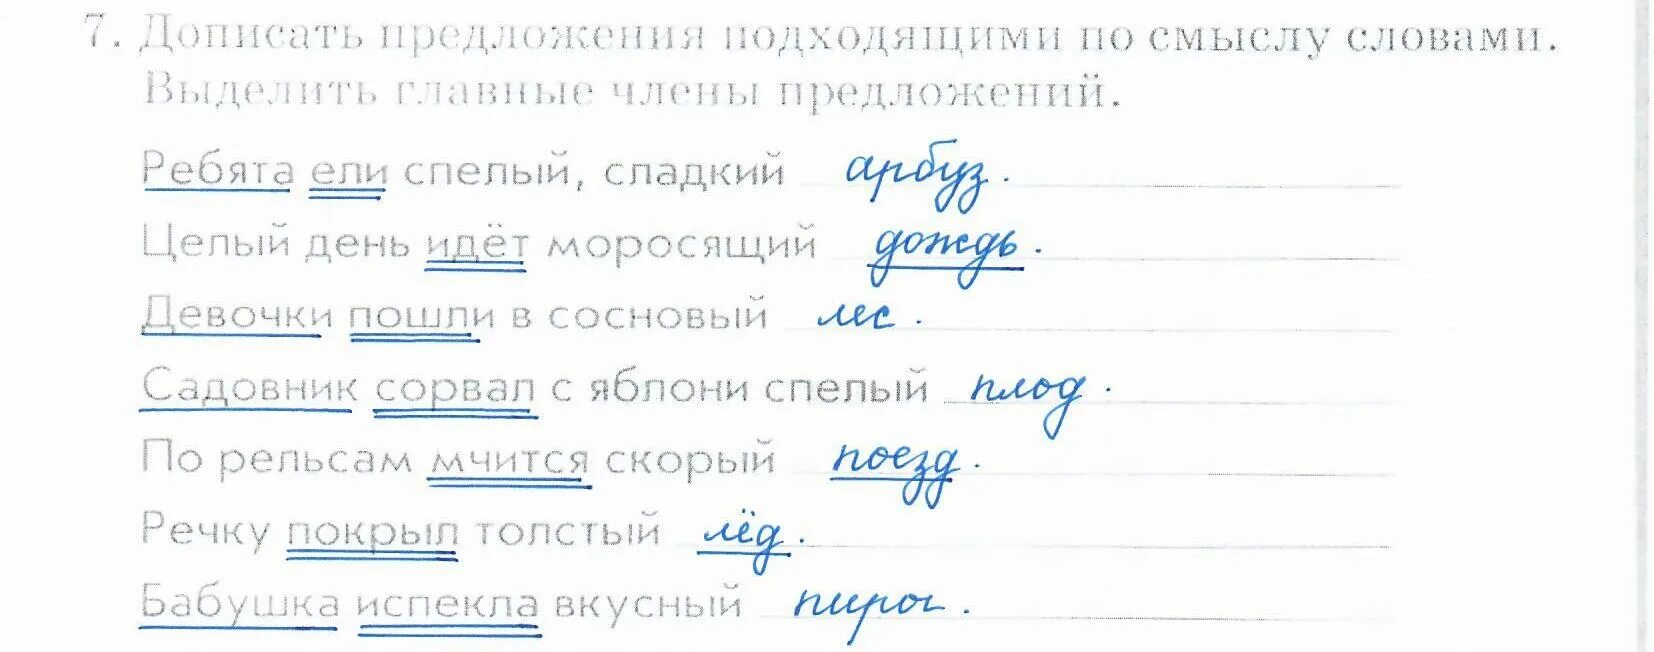 7. Дописать предложения подходящими по смыслу словами.
Выделить главные члены предложений.
Ребята ели спелый, сладкий арбуз.
Целый день идёт моросящий дождь.
Девочки пошли в сосновый лес.
Садовник сорвал с яблони спелый плод.
По рельсам мчится скорый поезд.
Речку покрыл толстый лёд.
Бабушка испекла вкусный пирог.